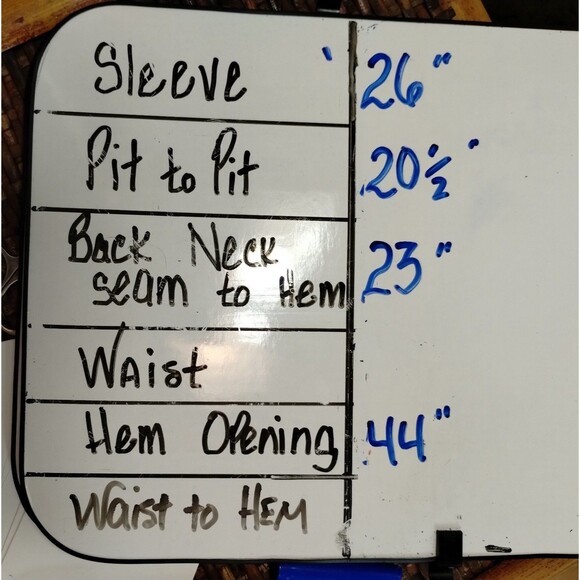 Sleeve 26"
Pit to Pit 20 1/2"
Back Neck
seam to Hem 23"
Waist
Hem Opening 44"
Waist to Hem